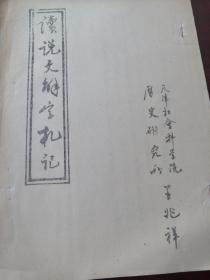 读说文解字札记
天津社会科学院
历史研究所
王兆祥